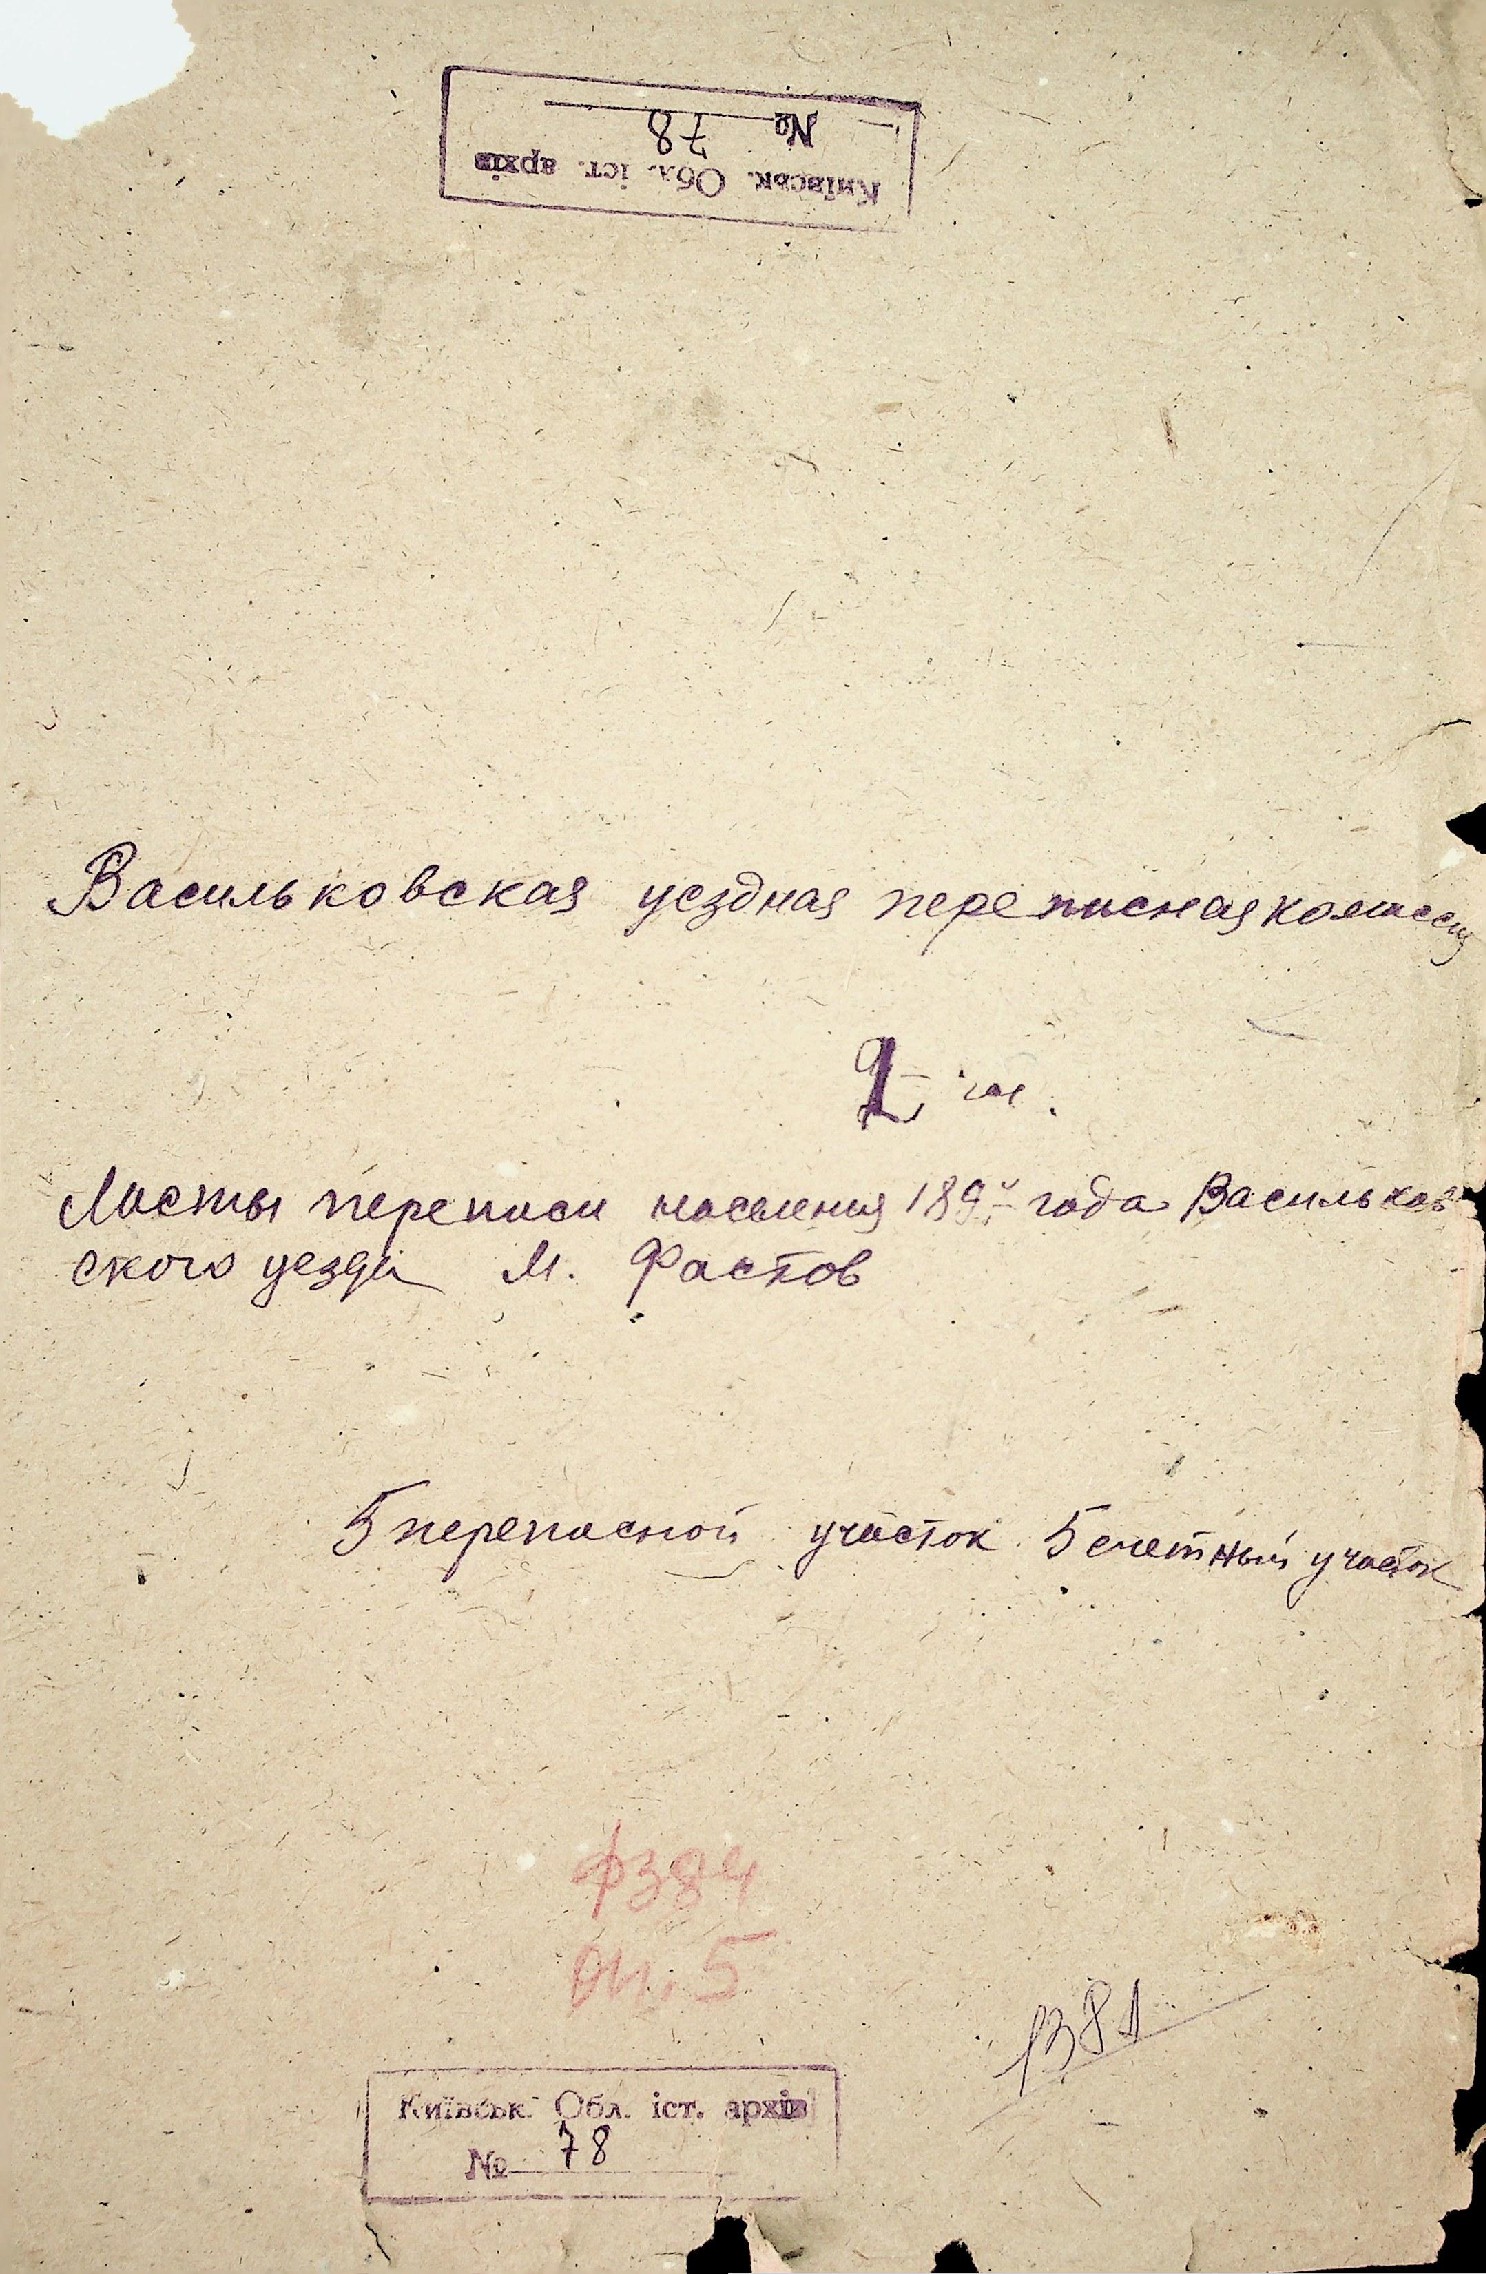 Київськ. Обл. іст. архів
№ 78
Васильковская уездная переписная комиссия
Листы переписи населения года Васильков
ского уезда М. Фастов
5 переписной участок 5 счетный участок
ф 384
оп. 5
1381
Київськ. Обл. іст. архів
№ 78